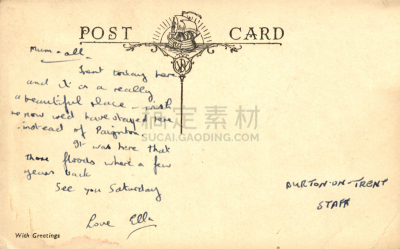 POST CARD
Mum - all.
Went today here
and it is a really
a beautiful place - wish
now we'd have stayed here
instead of Paignton.
It was here that
those floods where a few
years back
See you Saturday
Love Ella
BURTON-ON-TRENT
STAFF
With Greetings
搞定素材
SUCAI.GAODING.COM